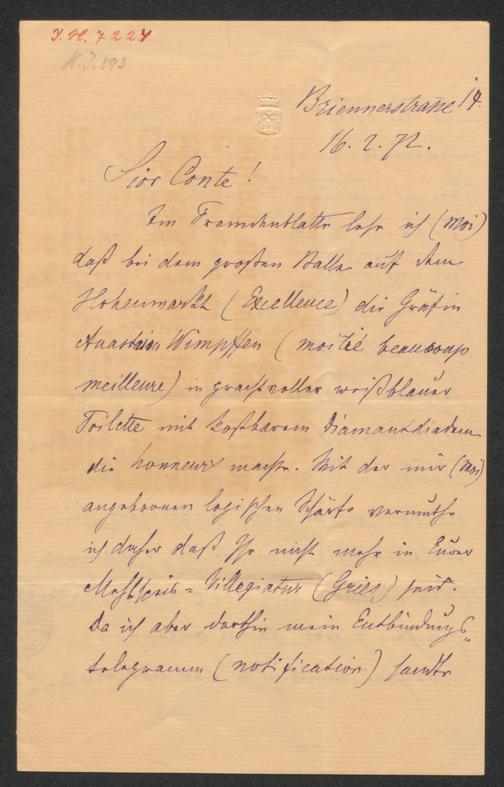 I.N. 7224
H.I. 893
Briennerstraße 14.
16. 2. 72.
Sior Conte!
Im Fremdenblatte lese ich (moi)
daß bei dem großen Balle auf dem
Hohenmarkt (Excellence) die Gräfin
Anastasia Wimpffen (moitié beaucoup
meilleure) in prachtvoller weißblauer
Toilette mit kostbarem Diamantdiadem
die honneurs machte. Mit der mir (moi)
angeborenen logischen Schärfe vermuthe
ich daher daß Ihr nicht mehr in Eurer
Mehlspeis-Villegiatur (Gries) seid.
Da ich aber dorthin mein Entbindungs-
telegramm (notification) sandte